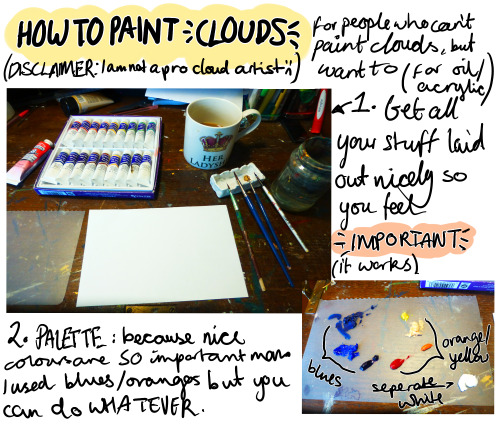 HOW TO PAINT CLOUDS
(DISCLAIMER: I am not a pro cloud artist)
for people who can't
paint clouds, but
want to (for oil/
acrylic)
1. Get all
your stuff laid
out nicely so
you feel
IMPORTANT
(it works)
HER
LADYSHIP
2. PALETTE: because nice
colours are SO important man.
I used blues/oranges but you
can do WHATEVER.
blues
orange/
yellow
seperate
white